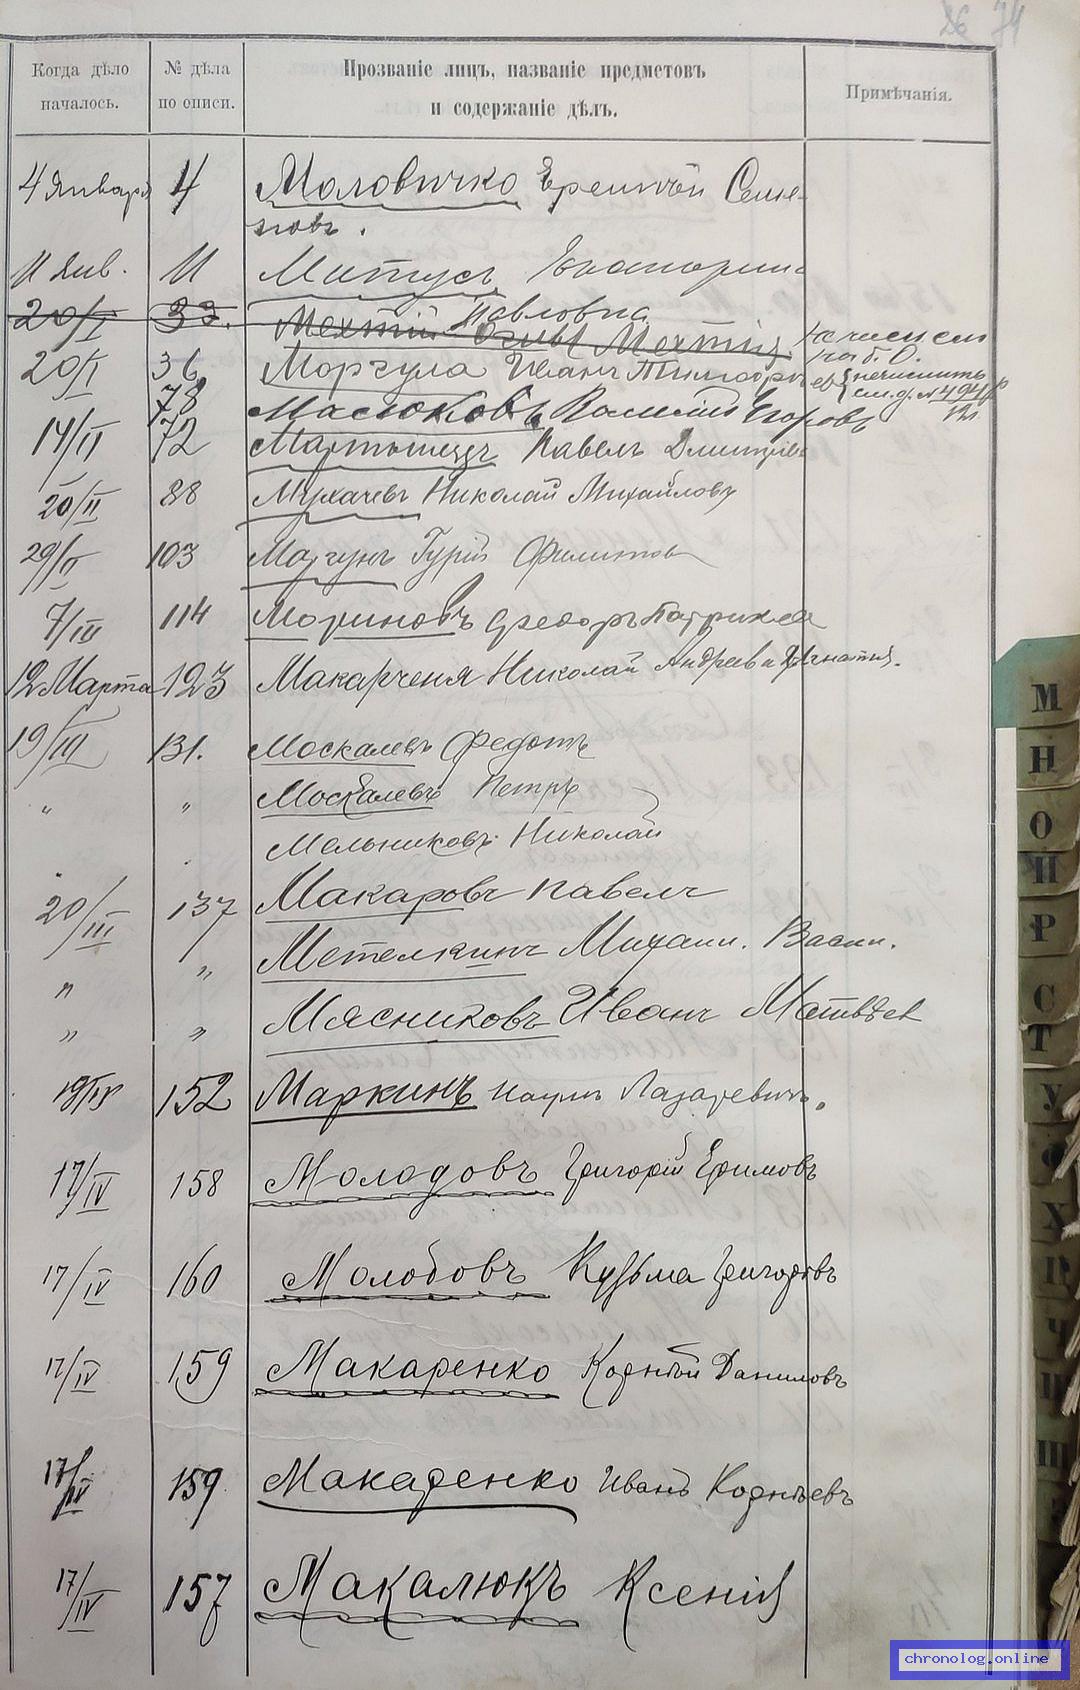 26 74
Когда дѣло началось. № дѣла по описи. Прозваніе лицъ, названіе предметовъ и содержаніе дѣлъ. Примѣчанія.
4 Января 4 Моловичко Еремѣй Семе-
новъ.
11 Янв. 11 Матусъ Екатерин
Павловна
20/I 33. Мехтій Оглы Мехтій
20/I 36 Моргула Иванъ
78 Масюковъ Василій Егоровъ
14/II 72 Мартышецъ Павелъ Дмитріев
20/II 88 Мухачевъ Николай Михайловъ
29/II 103 Маргунъ Гурій Филипов
7/III 114 Мориновъ Федоръ Патрикеев
12 Марта 123 Макарченя Николай Андреев и Игнатія.
19/III 131. Москалевъ Федотъ
" " Москалевъ Петръ
Мельниковъ Николай
20/III 137 Макаровъ Павелъ
" " Метелкинъ Михаил. Васил.
" " Мясниковъ Иванъ Матвѣев
19/IV 152 Маркинъ Наумъ Лазаревичъ.
17/IV 158 Молодовъ Григорій Ефимовъ
17/IV 160 Молодовъ Кузьма Григоровъ
17/IV 159 Макаренко Корнѣй Даниловъ
17/IV 159 Макаренко Иванъ Корнѣевъ
17/IV 157 Макалюкъ Ксенія
М
Н
О
П
Р
С
Т
У
Ф
Х
Ц
Ч
Ш
chronolog.online